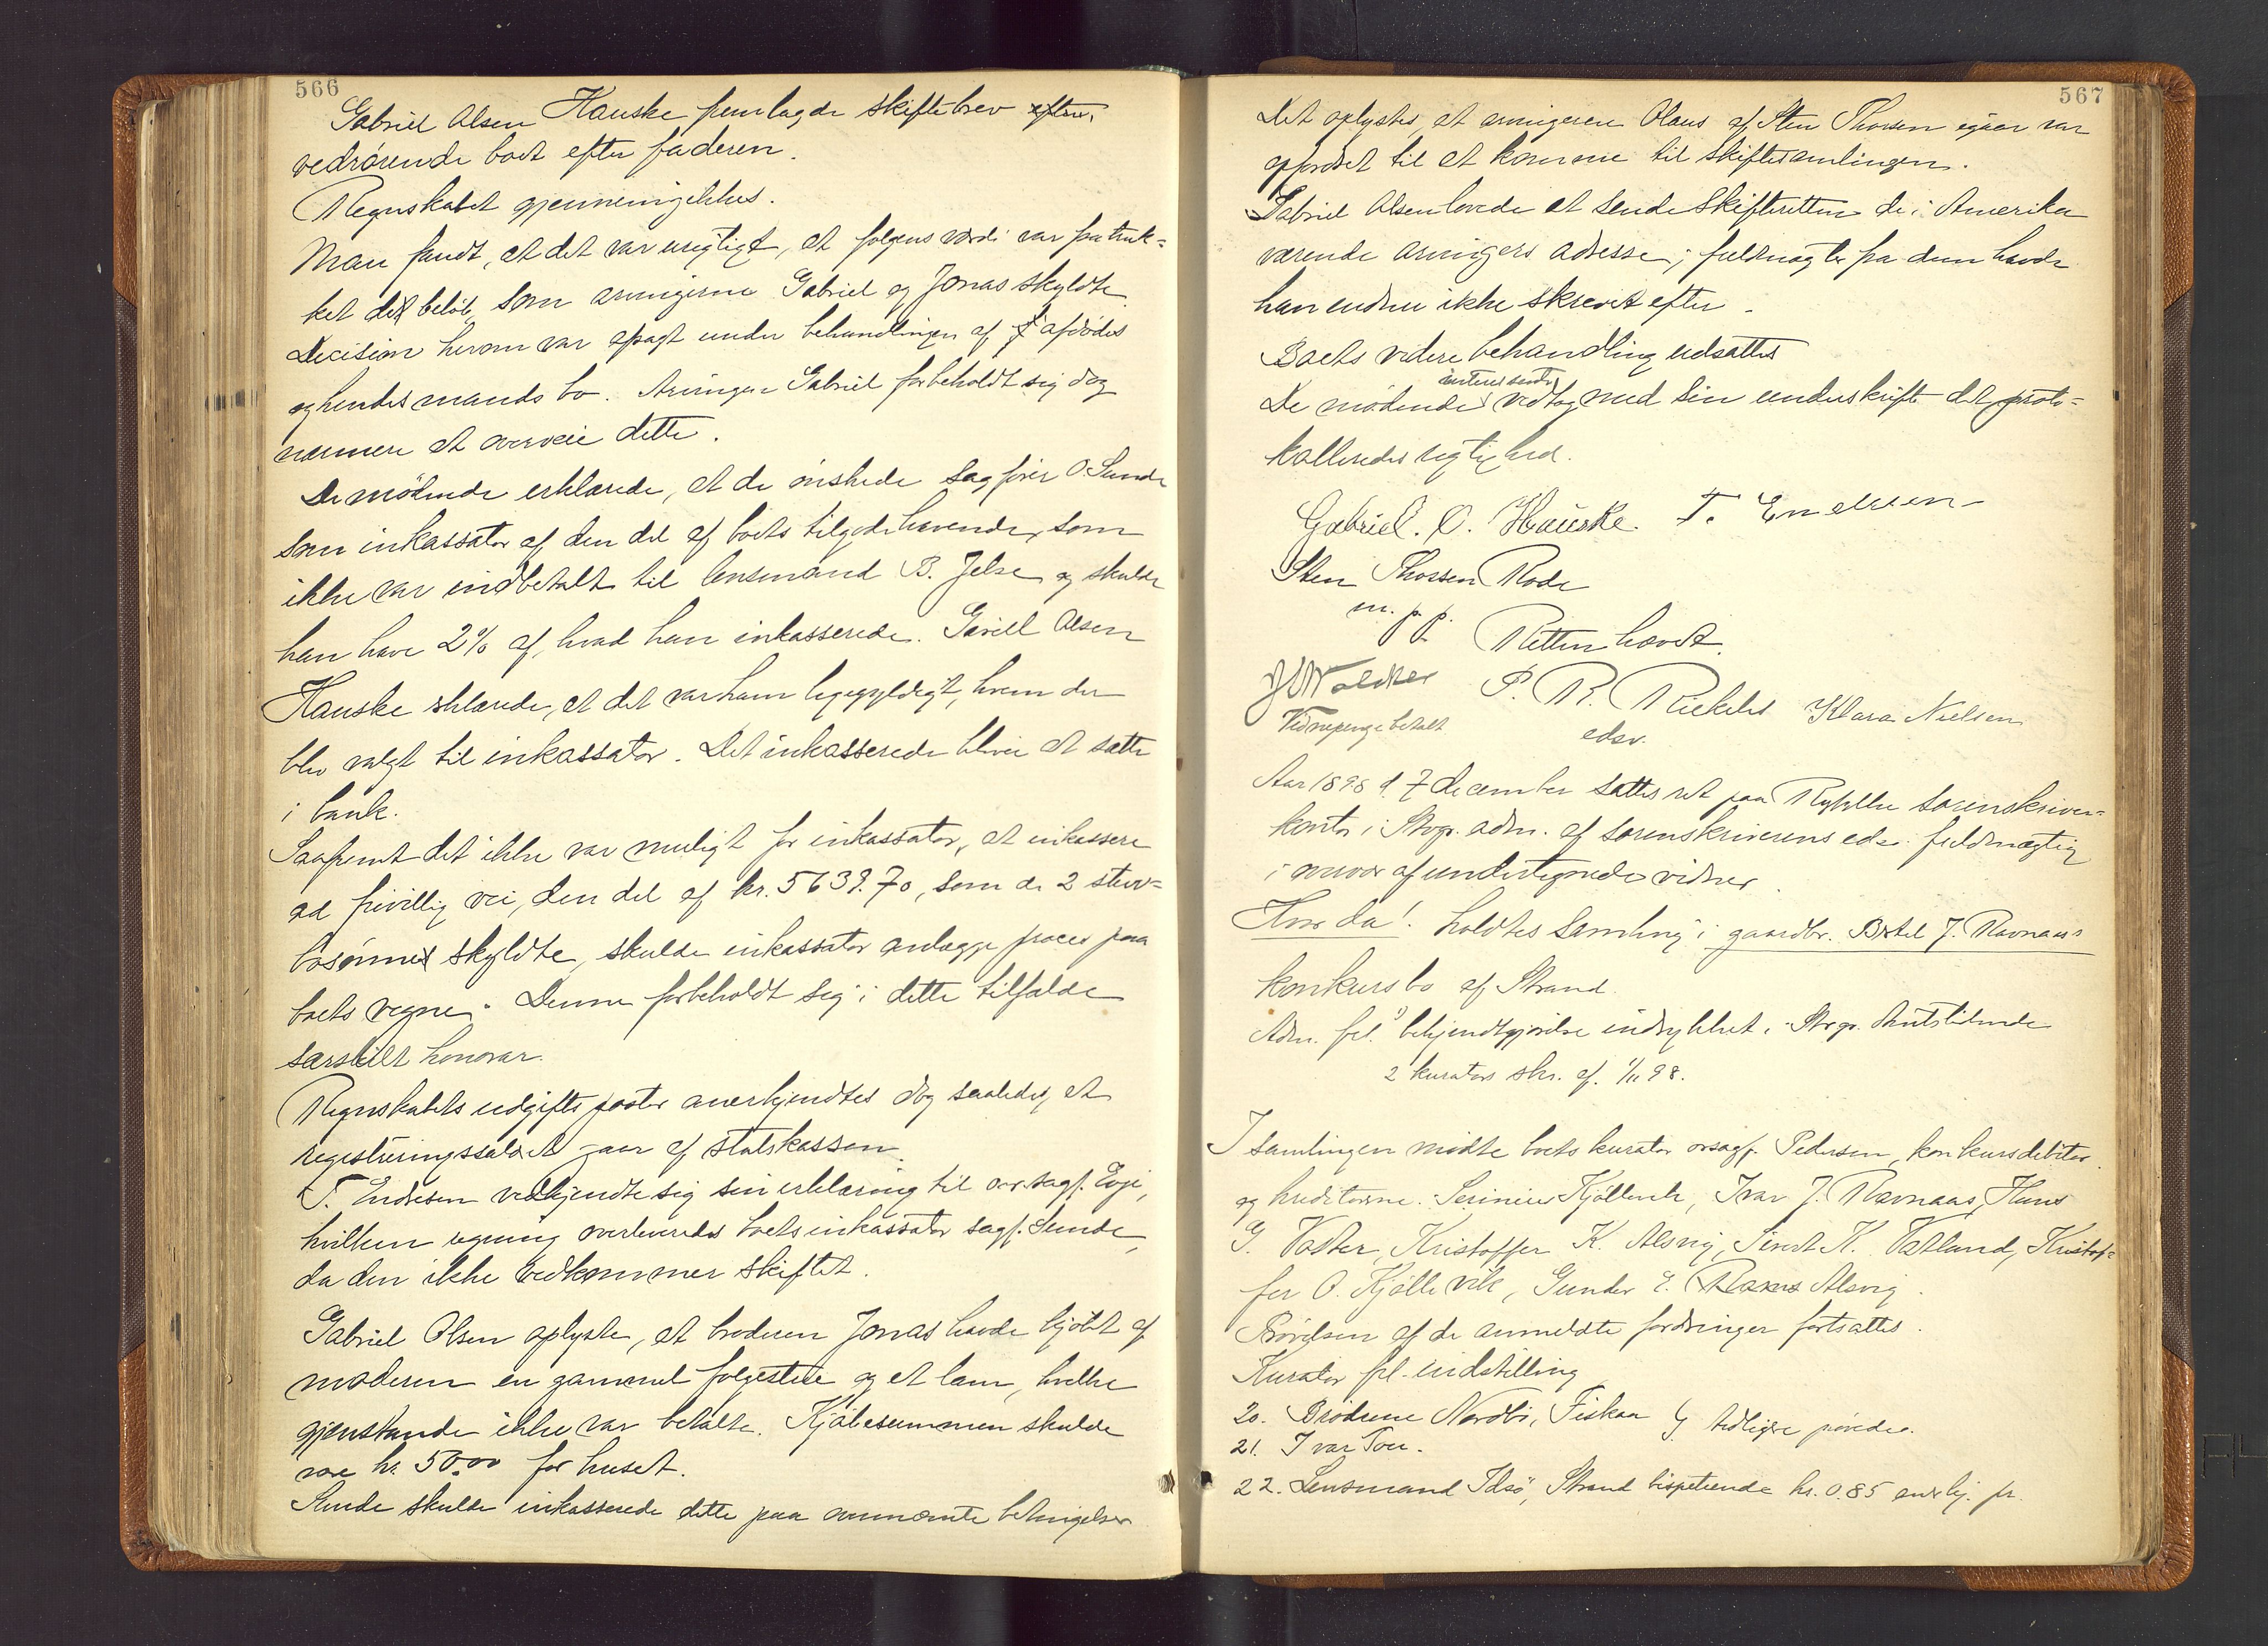 566
Gabriel Olsen Hauske fremlagde skiftebrev efter,
vedrørende boet efter faderen.
Regnskabet gjennemgikkes.
Man fandt, at det var urigtigt, at følgens værdi var fratruk=
ket det beløb, som arvingerne Gabriel og Jonas skyldte.
Decision herom var afsagt under behandlingen af afdødes
og hendes mands bo. Arvingen Gabriel forbeholdt sig dog
nærmere at overveie dette.
De mødende erklærede, at de ønskede sagfører O. Sunde
som inkassator af den del af boets tilgodehavender, som
ikke var indbetalt til lensmand B. Jelse og skulde
han have 2% af, hvad han inkasserede. Gabriel Olsen
Hauske erklærede, at det var ham ligegyldigt, hvem der
blev valgt til inkassator. Det inkasserede bliver at sætte
i bank.
Saafremt det ikke var muligt for inkassator, at inkassere
ad frivillig vei, den del af kr. 5639.70, som de 2 sterv=
bosønner skyldte, skulde inkassator anlægge proces paa
boets vegne. Denne forbeholdt sig i dette tilfælde
særskilt honorar.
Regnskabets udgiftsposter anerkjendtes dog saaledes, at
registreringssalæret gaar af statskassen.
T. Endresen vedkjendte sig sin erklæring til oversagf. Evje,
hvilken regning overleveredes boets inkassator sagf. Sunde,
da den ikke vedkommer skiftet.
Gabriel Olsen oplyste, at broderen Jonas havde kjøbt af
moderen en gammel følgestue og et lam, hvilke
gjenstande ikke var betalte. Kjøbesummen skulde
være kr. 50.00 for huset.
Sunde skulde inkasserede dette paa ovennævnte betingelser
567
Det oplystes, at arvingeren Olaus af Sten Thorsen igaar var
opfordret til at komme til skiftesamlingen.
Gabriel Olsen lovede at sende skifteretten de i Amerika
værende arvingers adresse; fuldmagter fra dem havde
han endnu ikke skrevet efter.
Boets videre behandling udsattes
interessenter
De mødende vedtog med sin underskrift det proto=
kolleredes rigtighed.
Gabriel. O. Hauske. T. Endresen
Sten Thorsen Rode
m. p. p.
Retten hævet.
P. R. Rickels Klara Nielsen
Vidnepenge betalt
edsv.
Aar 1898 d. 7 december sattes ret paa Ryfylke sorenskriver=
kontor i Stvgr. adm. af sorenskriverens edsv. fuldmægtig
i nærvær af undertegnede vidner.
Hvor da! holdtes samling i gaardbr. Bertel J. Ravnaas
konkursbo af Strand.
Adm. frl. 1) bekjendtgjørelse indrykket i Stvgr. Amtstidende
2 kurators skr. af. 1/11 98.
I samlingen mødte boets kurator orsagf. Pedersen, konkursdebitor
og kreditorerne. Serinius Kjøllevik, Ivar J. Ravnaas, Hans
G. Vaster, Kristoffer K. Alsvig, Sivert K. Vatland, Kristof=
fer O. Kjøllevik, Gunder E. Alsvig.
Prøvelsen af de anmeldte fordringer fortsattes.
Kurator frl. indstilling
20. Brødrene Nordbø, Fiskaa } tidligere prøvede.
21. Ivar Tou.
22. Lensmand Idsø, Strand bispetiende kr. 0.85 anerkj. pr.